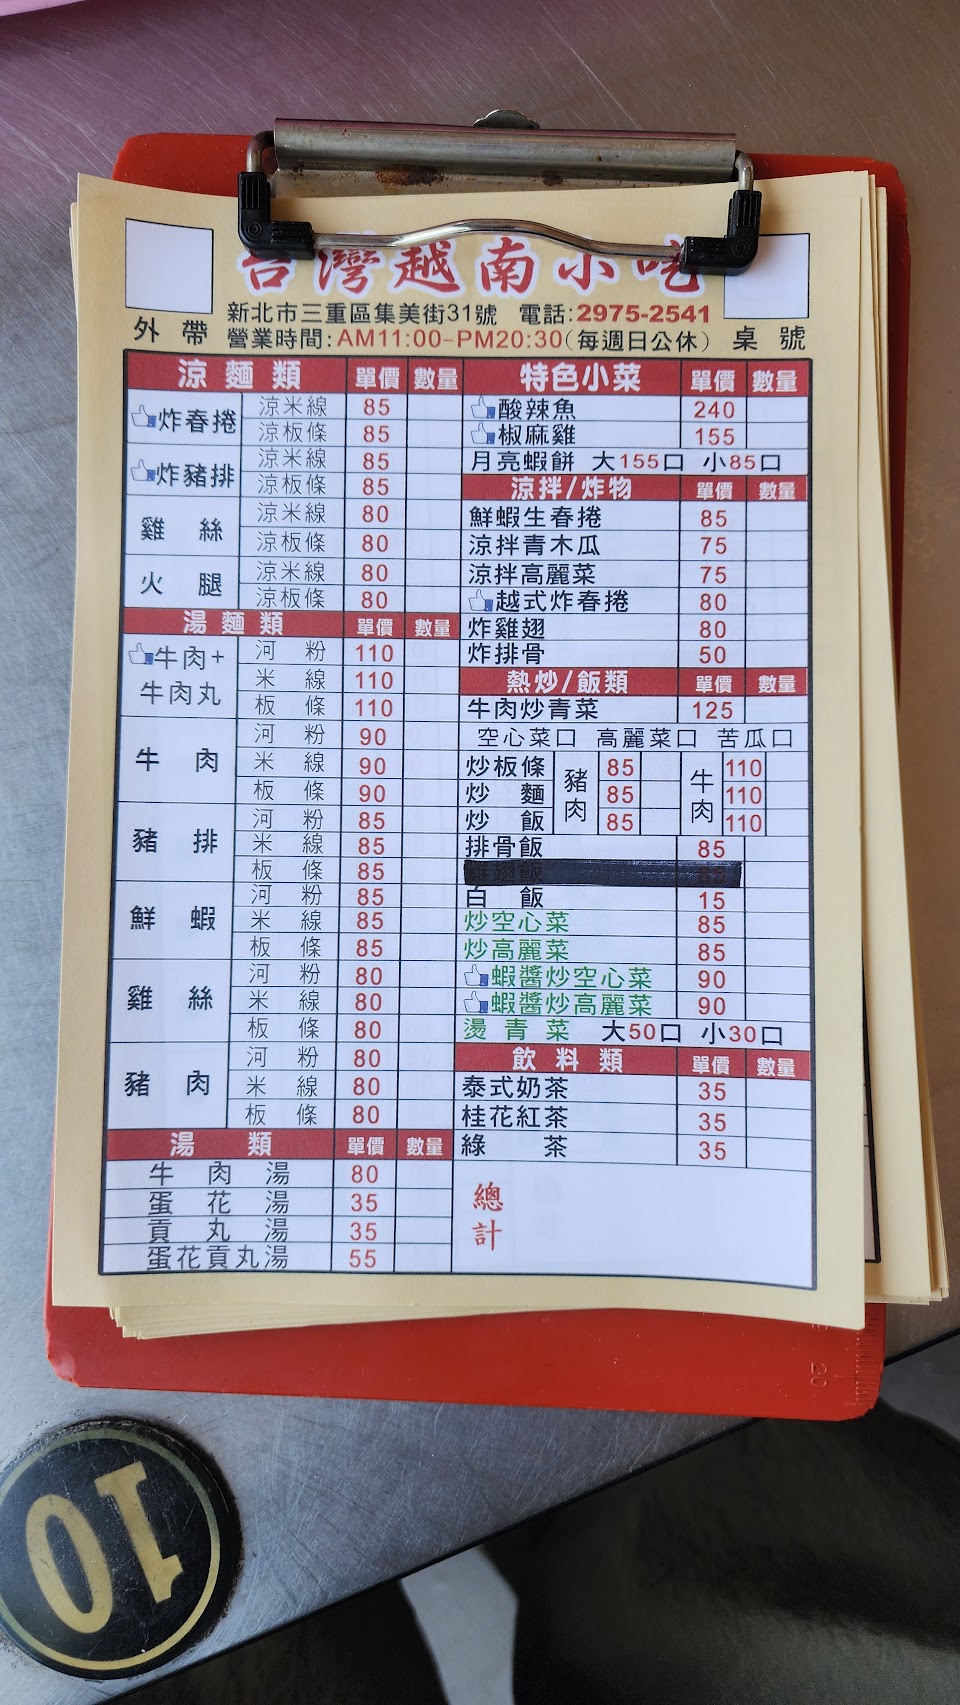 台灣越南小吃
新北市三重區集美街31號 電話:2975-2541
外帶 營業時間:AM11:00-PM20:30(每週日公休) 桌號
涼麵類 單價 數量
炸春捲 涼米線 85
涼板條 85
炸豬排 涼米線 85
涼板條 85
雞絲 涼米線 80
涼板條 80
火腿 涼米線 80
涼板條 80
湯麵類 單價 數量
牛肉+牛肉丸 河粉 110
米線 110
板條 110
牛肉 河粉 90
米線 90
板條 90
豬排 河粉 85
米線 85
板條 85
鮮蝦 河粉 85
米線 85
板條 85
雞絲 河粉 80
米線 80
板條 80
豬肉 河粉 80
米線 80
板條 80
湯類 單價 數量
牛肉湯 80
蛋花湯 35
貢丸湯 35
蛋花貢丸湯 55
特色小菜 單價 數量
酸辣魚 240
椒麻雞 155
月亮蝦餅 大155口 小85口
涼拌/炸物 單價 數量
鮮蝦生春捲 85
涼拌青木瓜 75
涼拌高麗菜 75
越式炸春捲 80
炸雞翅 80
炸排骨 50
熱炒/飯類 單價 數量
牛肉炒青菜 125
空心菜口 高麗菜口 苦瓜口
炒板條 豬肉 85 牛肉 110
炒麵 85 110
炒飯 85 110
排骨飯 85
雞翅飯
白飯 15
炒空心菜 85
炒高麗菜 85
蝦醬炒空心菜 90
蝦醬炒高麗菜 90
燙青菜 大50口 小30口
飲料類 單價 數量
泰式奶茶 35
桂花紅茶 35
綠茶 35
總計
20
10